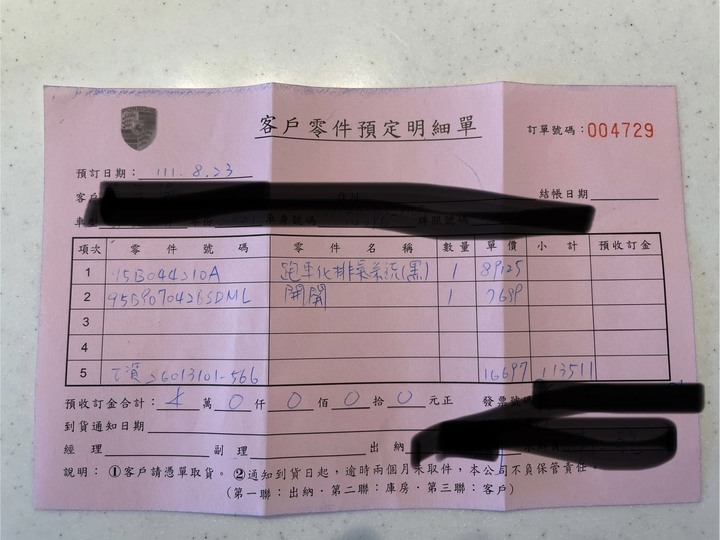 客戶零件預定明細單
訂單號碼：004729
預訂日期：111.8.23
客戶 結帳日期
車 車身號碼 牌照號碼
項次 零件號碼 零件名稱 數量 單價 小計 預收訂金
1 95B044210A 跑車化排氣系統(黑) 1 89125
2 1
3
4
5 113511
預收訂金合計： 萬0仟0佰0拾0元正 發票號
到貨通知日期
經理 副理 出納
說明：①客戶請憑單取貨。②通知到貨日起，逾時兩個月未取件，本公司不負保管責任。
(第一聯：出納．第二聯：庫房．第三聯：客戶)